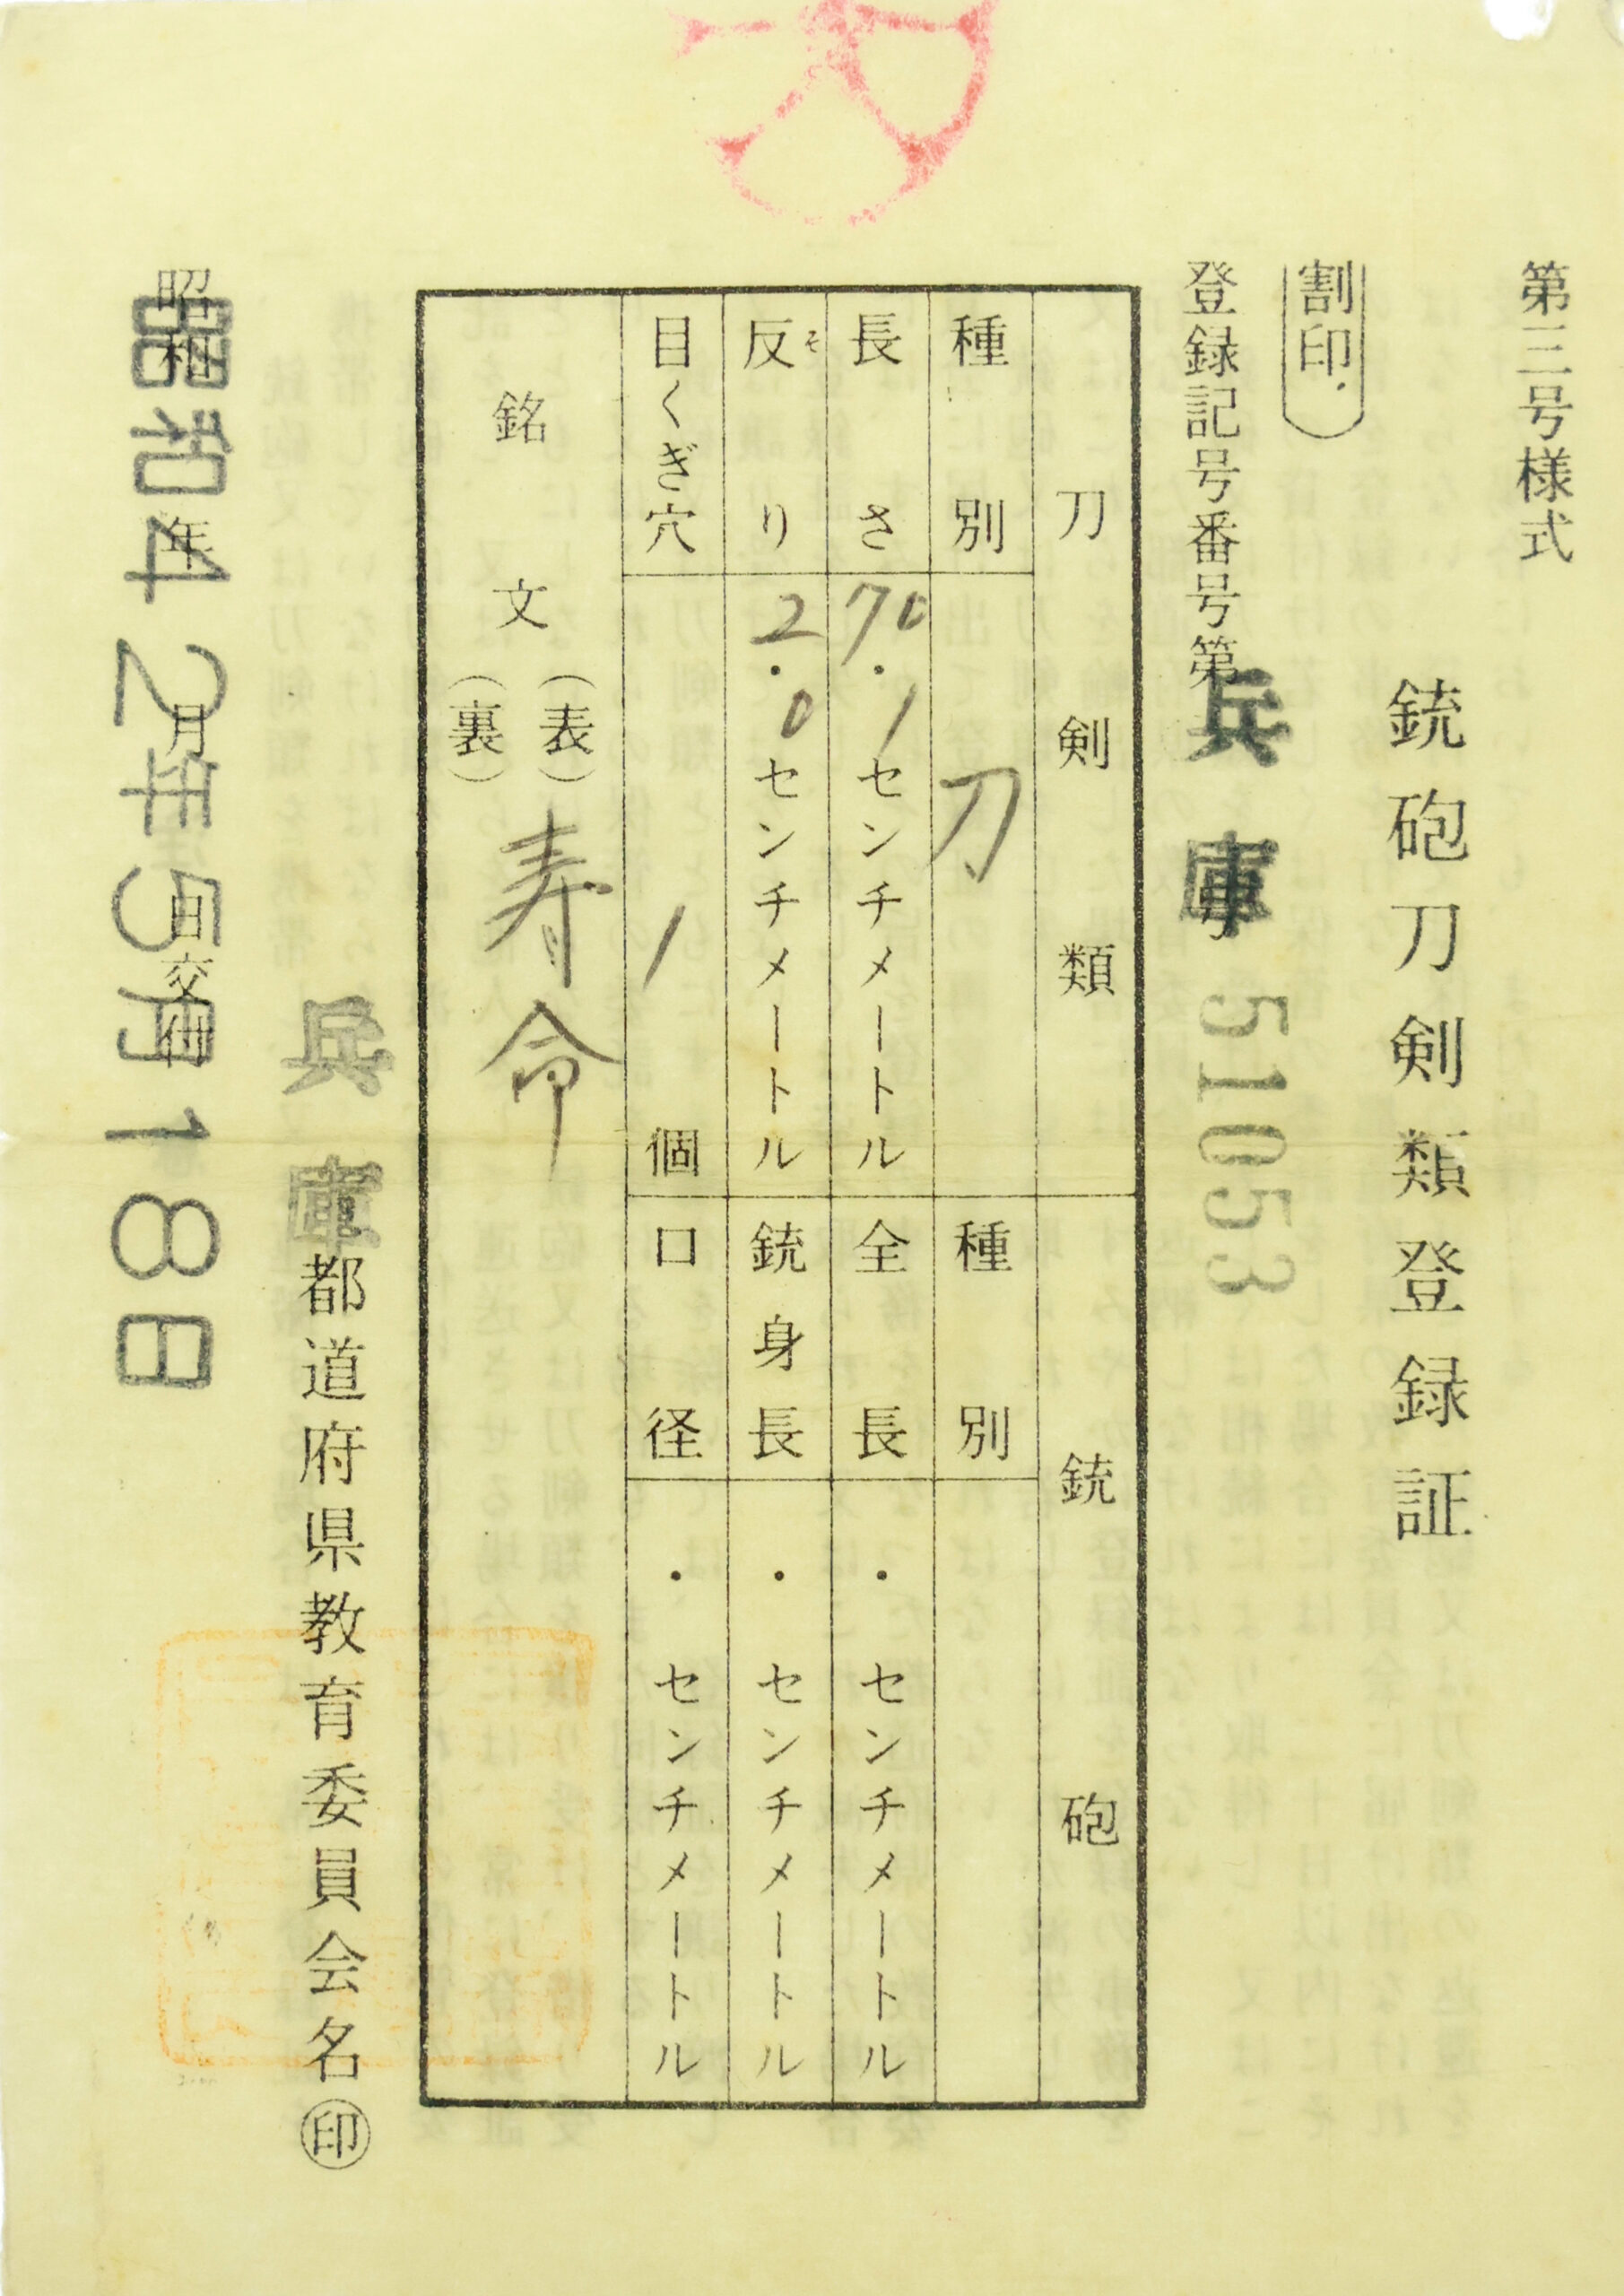 第三号様式
銃砲刀剣類登録証
割印
登録記号番号第 兵庫 号 51053
刀剣類
種別 刀
長さ 70.1センチメートル
反り 2.0センチメートル
そ
目くぎ穴 1個
銃砲
種別
全長 ・センチメートル
銃身長 ・センチメートル
口径 ・センチメートル
銘文
(表) 寿命
(裏)
兵庫 都道府県教育委員会名 印
昭和 年 月 日交付
昭和42年5月18日